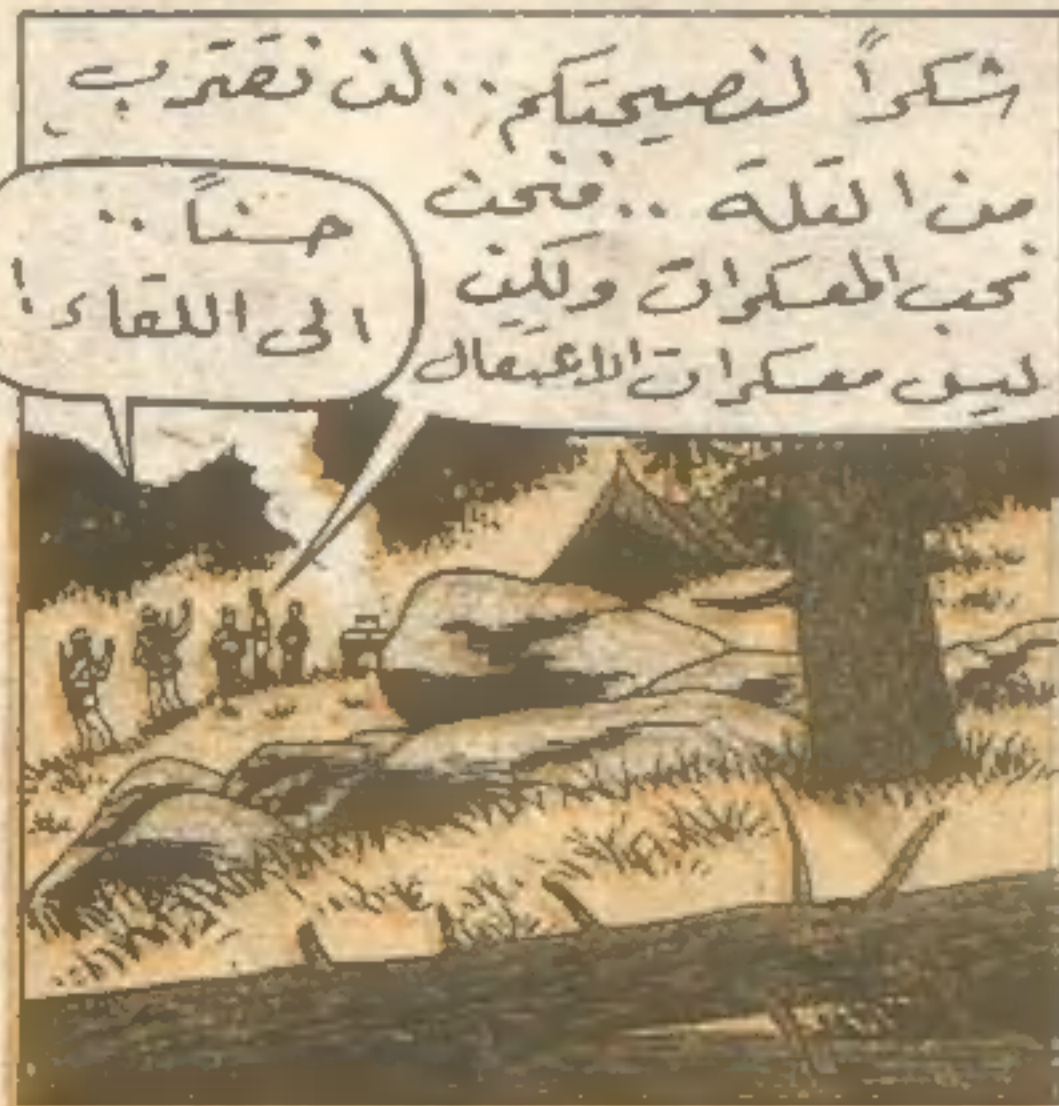 شكراً لنصيحتكم.. لن نقترب
من التلة .. فنحن
نحب المعسكرات ولكن
ليس معسكرات الاعتقال
حسناً ..
الى اللقاء !